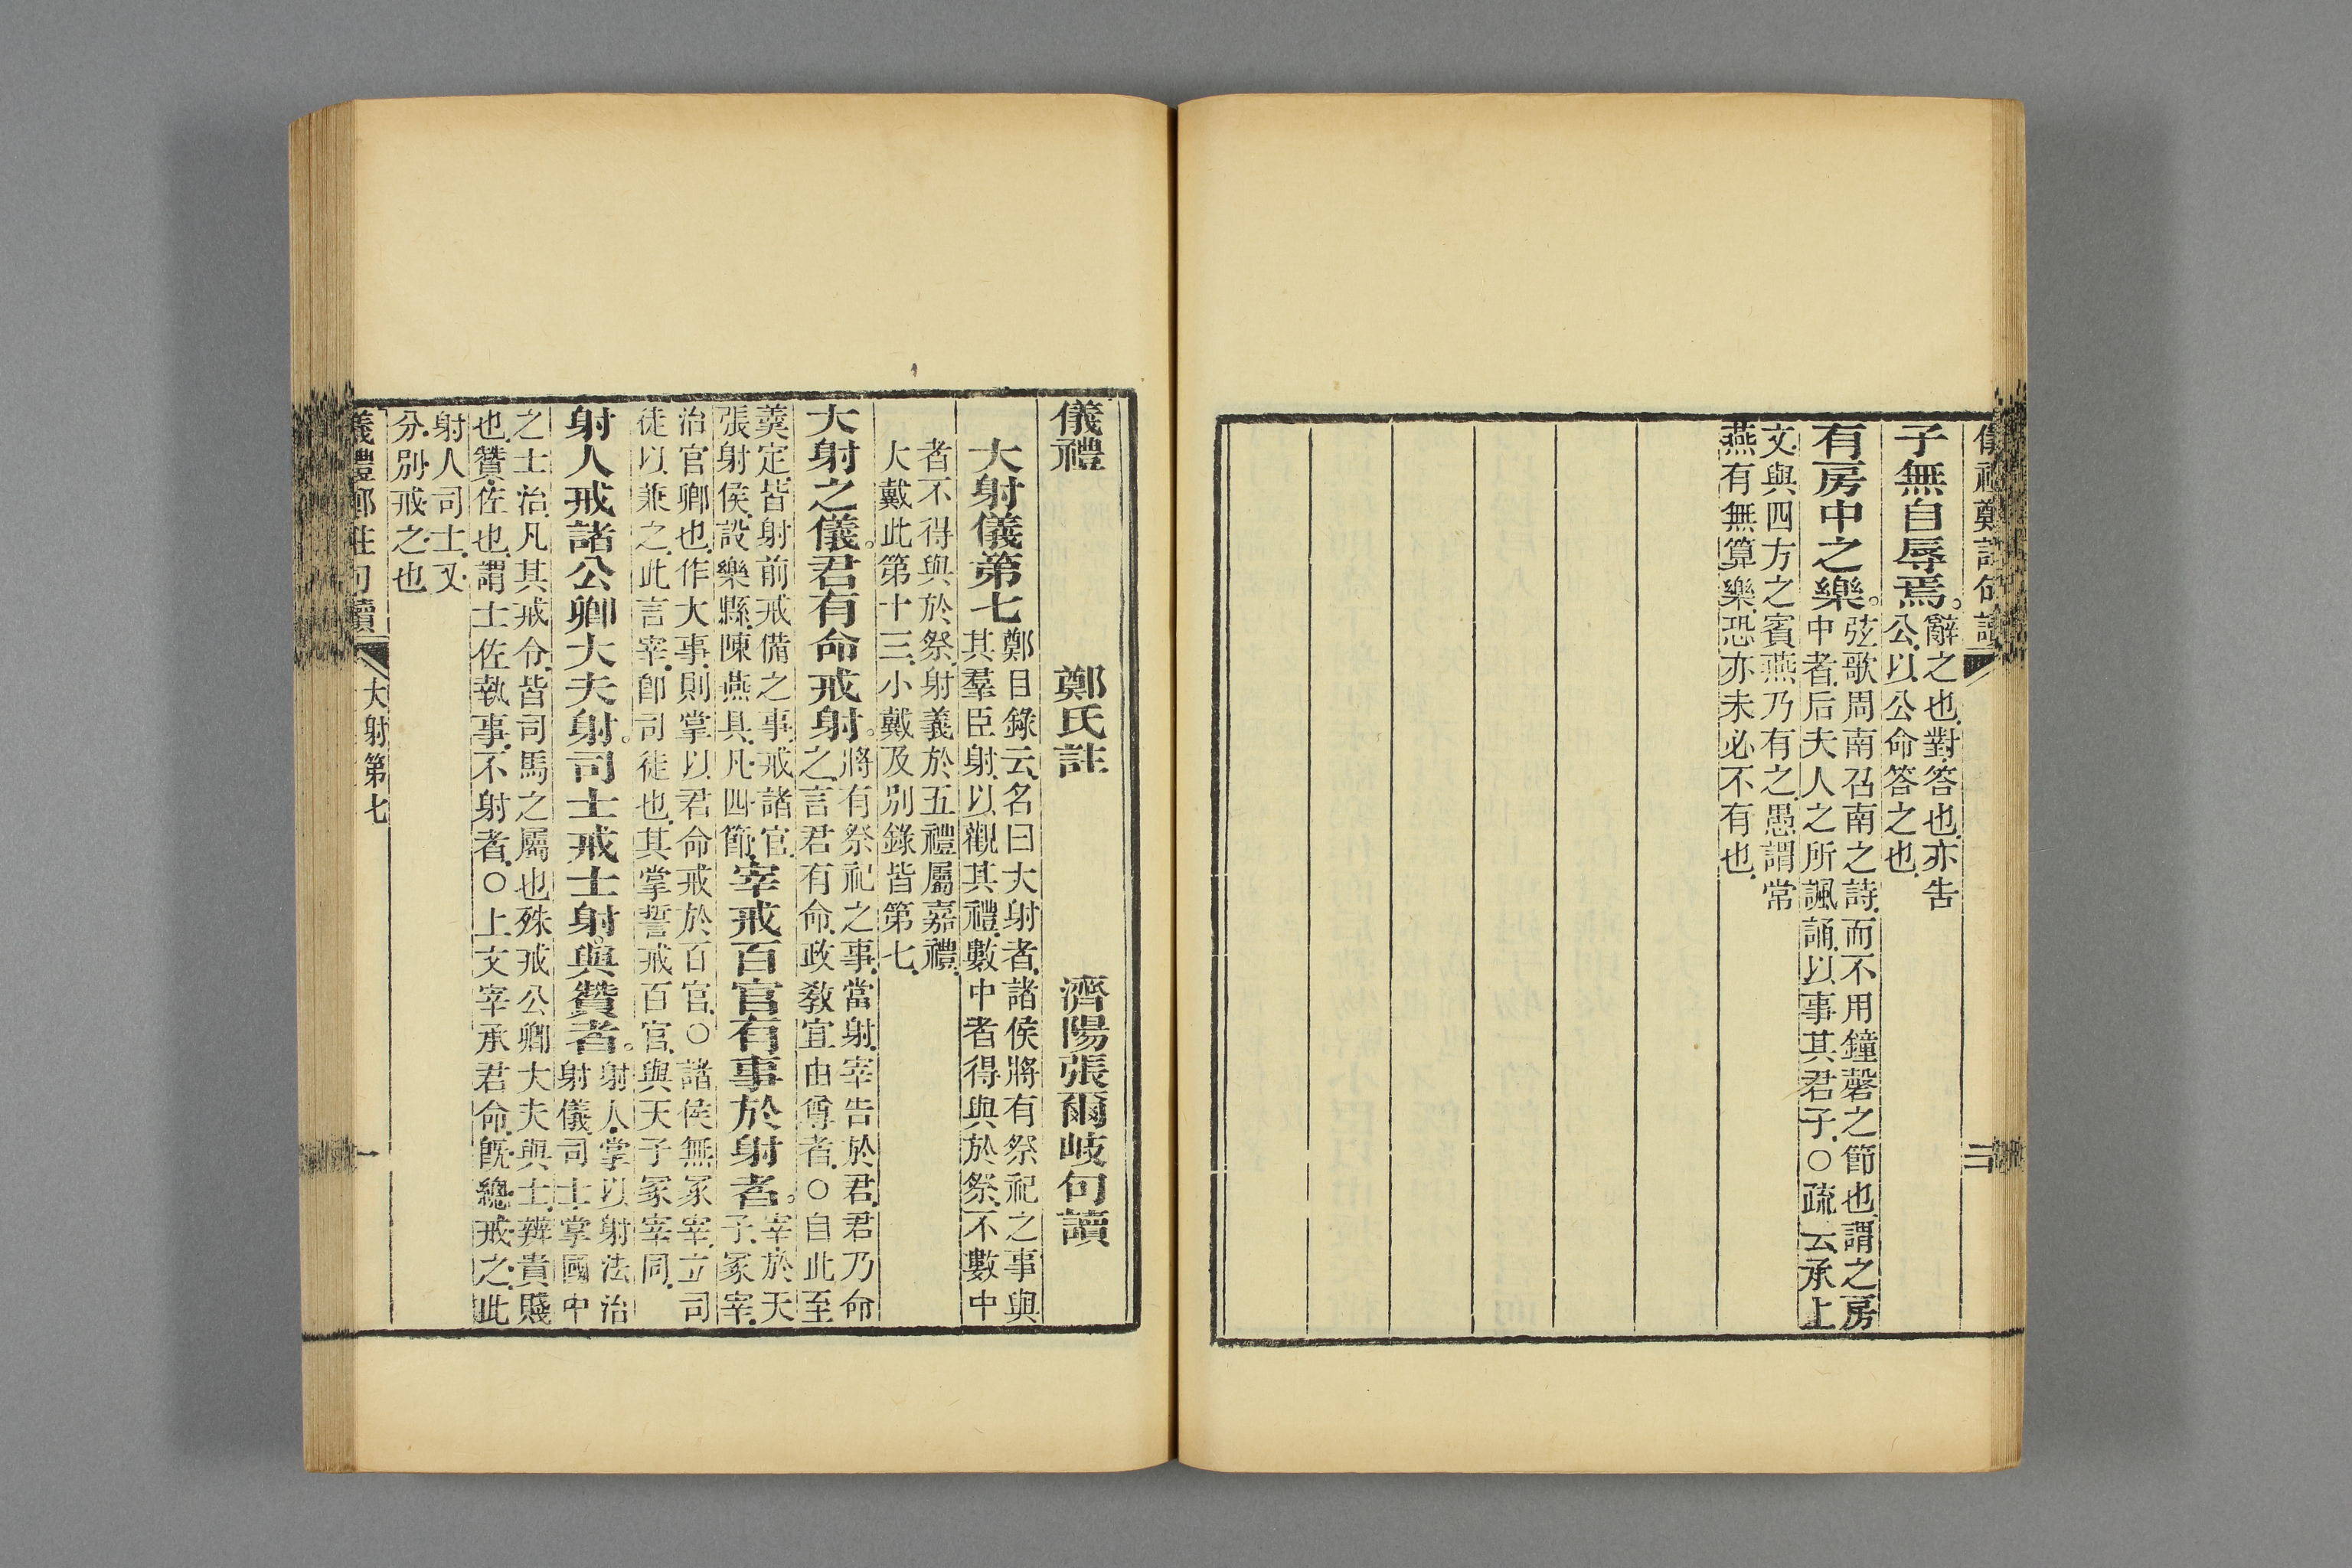 儀禮鄭註句讀
子無自辱焉。辭之也對答也亦告
公以公命答之也
有房中之樂。弦歌周南召南之詩而不用鐘磬之節也謂之房
中者后夫人之所諷誦以事其君子○疏云承上
文與四方之賓燕乃有之愚謂常
燕有無算樂恐亦未必不有也
儀禮 鄭氏註 濟陽張爾岐句讀
大射儀第七鄭目錄云名曰大射者諸侯將有祭祀之事與
其羣臣射以觀其禮數中者得與於祭不數中
者不得與於祭射義於五禮屬嘉禮
大戴此第十三小戴及別錄皆第七
大射之儀。君有命戒射。將有祭祀之事當射宰告於君君乃命
之言君有命政敎宜由尊者○自此至
羹定皆射前戒備之事戒諸官
張射侯設樂縣陳燕具凡四節宰戒百官有事於射者。宰於天
子冢宰
治官卿也作大事則掌以君命戒於百官○諸侯無冢宰立司
徒以兼之此言宰卽司徒也其掌誓戒百官與天子冢宰同
射人戒諸公卿大夫射。司士戒士射。與贊者。射人掌以射法治
射儀司士掌國中
之士治凡其戒令皆司馬之屬也殊戒公卿大夫與士辨貴賤
也贊佐也謂士佐執事不射者○上文宰承君命旣總戒之此
射人司士又
分別戒之也
儀禮鄭註句讀 大射第七 一